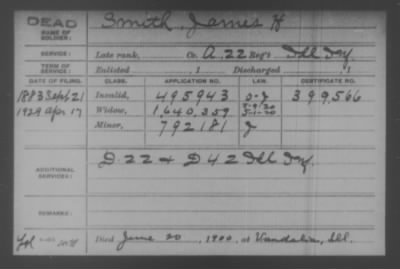 DEAD
NAME OF SOLDIER: Smith, James H
SERVICE: Late rank, Co. A, 22 Reg't Ill Inf.
TERM OF SERVICE: Enlisted , 1 Discharged , 1
DATE OF FILING. CLASS. APPLICATION NO. LAW. CERTIFICATE NO.
1883 Sept 21 Invalid, 495943 399,566
1929 Apr 17 Widow, 1,640,359 5-1-20
Minor, 792181
ADDITIONAL SERVICES: D. 22 & D 42 Ill Inf.
REMARKS:
Died June 20, 1900, at Vandalia, Ill.